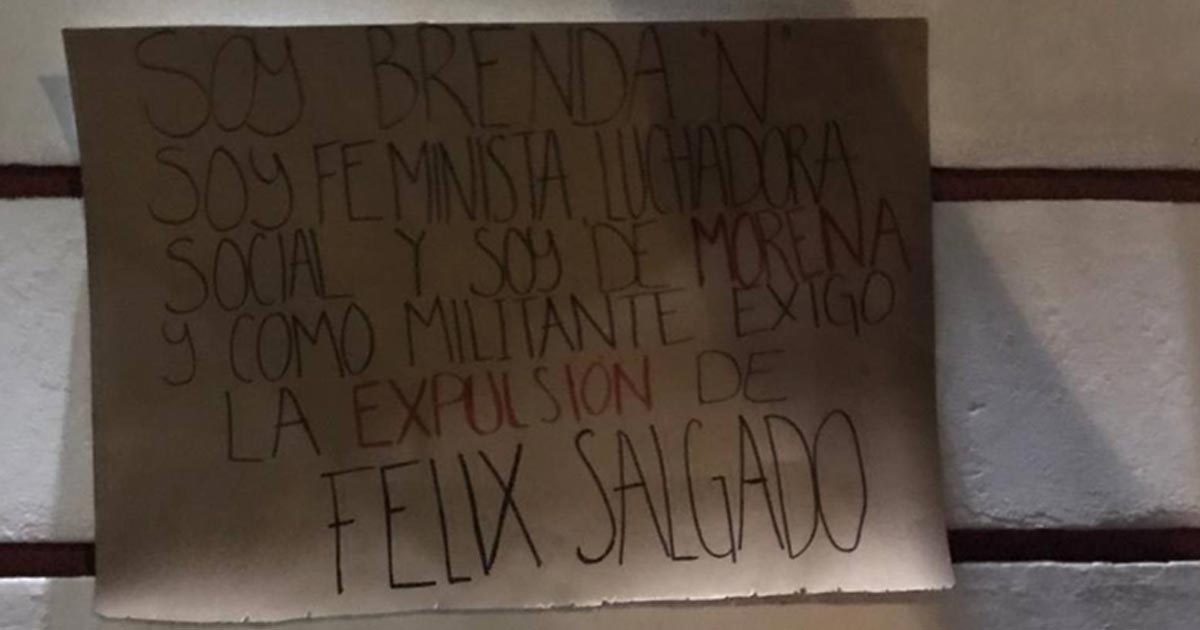 SOY BRENDA "N"
SOY FEMINISTA, LUCHADORA
SOCIAL Y SOY DE MORENA
Y COMO MILITANTE EXIGO
LA EXPULSIÓN DE
FELIX SALGADO